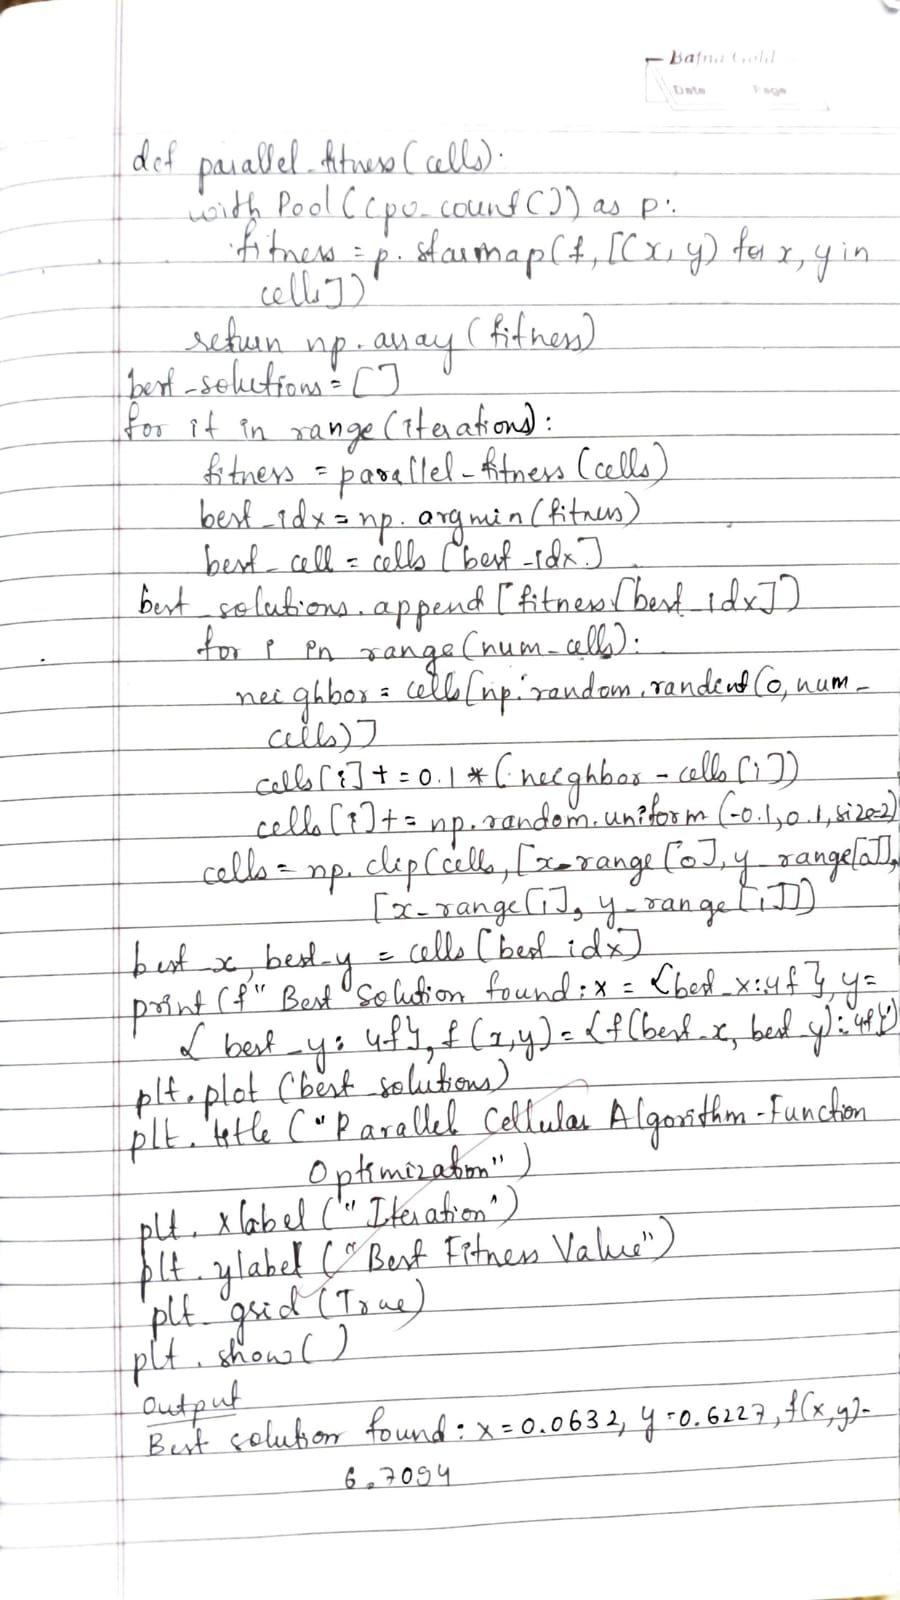 Bafna Gold
Date Page
def parallel-fitness(cells):
with Pool(cpu-count()) as p:
fitness = p.starmap(f, [(x, y) for x, y in
cells])
return np.array(fitness)
best-solutions = []
for it in range(iterations):
fitness = parallel-fitness(cells)
best-idx = np.argmin(fitness)
best-cell = cells[best-idx]
best_solutions.append[fitness[best_idx])
for i in range(num-cells):
neighbor = cells[np.random.randint(0, num-
cells)]
cells[i] += 0.1 * (neighbor - cells[i])
cells[i] += np.random.uniform(-0.1, 0.1, size=2)
cells = np.clip(cells, [x-range[0], y_range[0]],
[x-range[1], y_range[1]])
best_x, best-y = cells[best_idx]
print(f" Best Solution found: x = {best_x:4f}, y=
{best_y: 4f}, f(x,y) = {f(best_x, best_y):4f}")
plt.plot(best_solutions)
plt.title("Parallel Cellular Algorithm-Function
Optimization")
plt.xlabel("Iteration")
plt.ylabel("Best Fitness Value")
plt.grid(True)
plt.show()
Output
Best solution found: x=0.0632, y=0.6227, f(x,y)=
6.7094